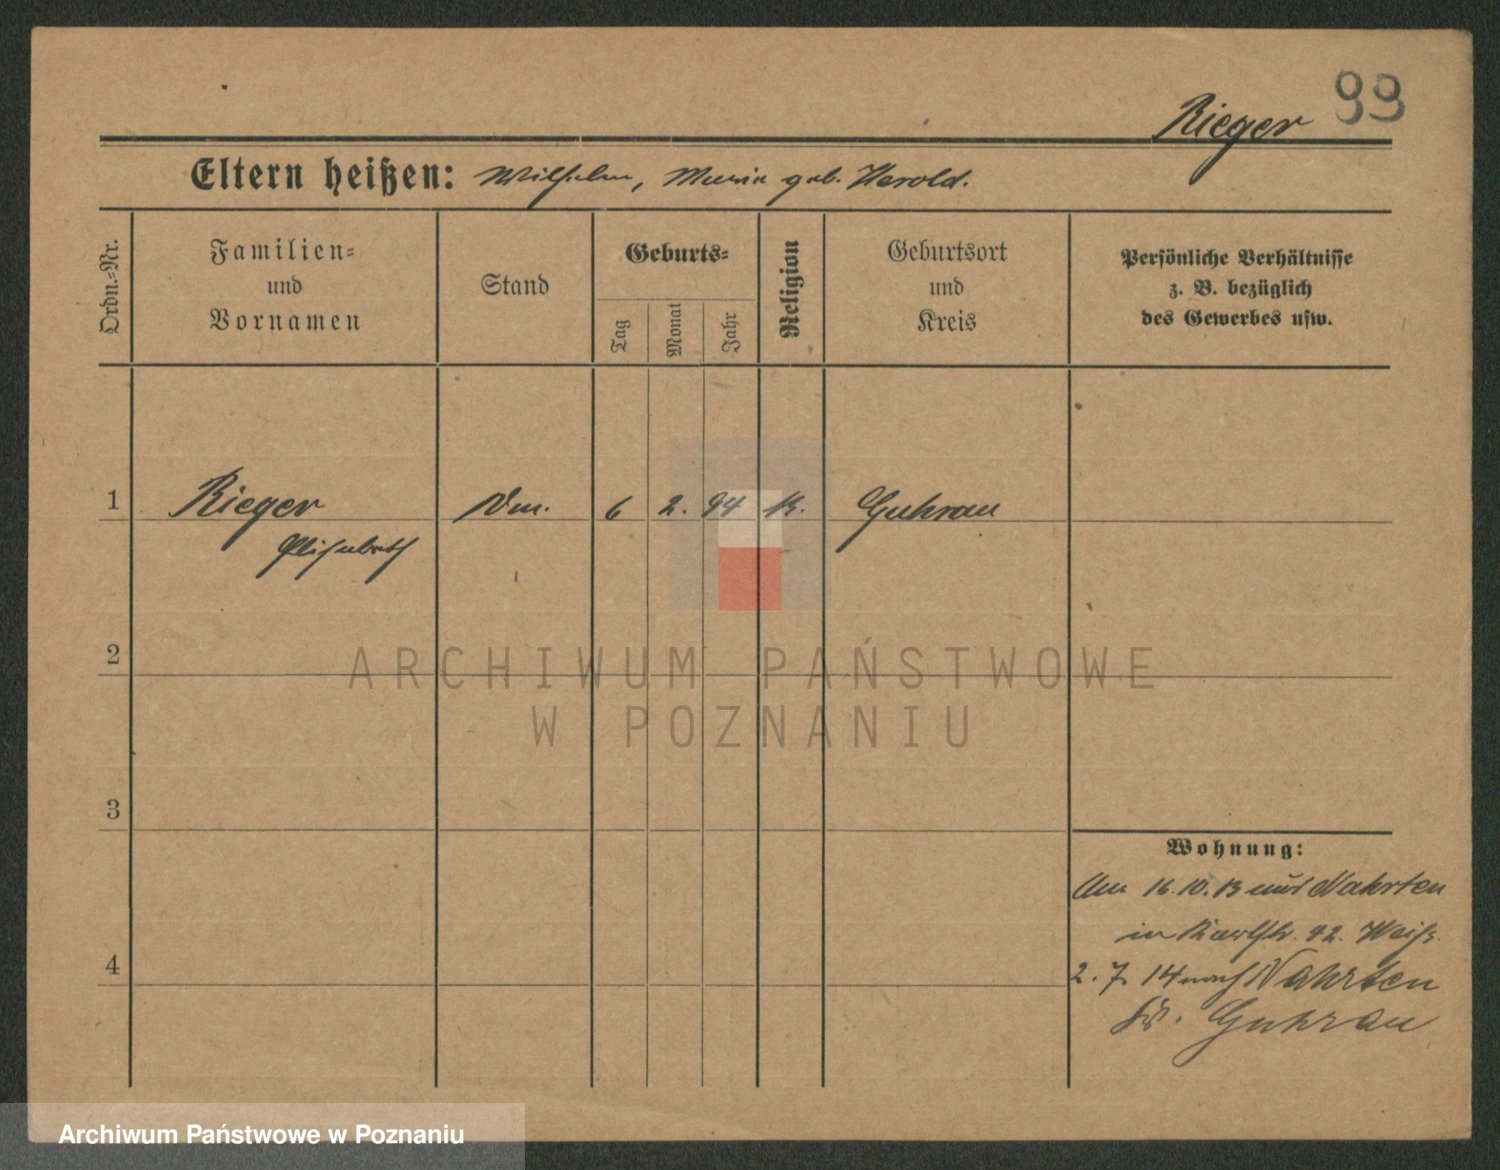 99
Rieger
Eltern heißen: Wilhelm, Maria geb. Herold.
Ordn.-Nr.
Familien-
und
Vornamen
Stand
Geburts-
Tag
Monat
Jahr
Religion
Geburtsort
und
Kreis
Persönliche Verhältnisse
z. B. bezüglich
des Gewerbes usw.
1 Rieger 6 2. 94 K. Guhrau
Elisabeth
2
3
4
Wohnung:
Am 16.10.13 aus Nahrten
in Karlstr. 42. Weiß.
2. 7. 14 nach Nahrten
Kr. Guhrau
ARCHIWUM PAŃSTWOWE
W POZNANIU
Archiwum Państwowe w Poznaniu